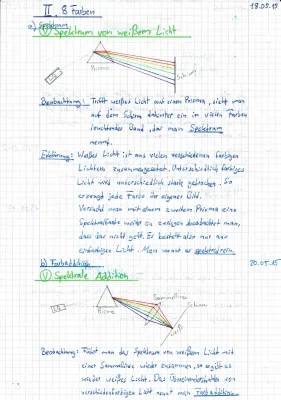 II 8 Farben 18.05.15
a) Spektrum
Ⓥ Spektrum von weißem Licht
Prisma
Schirm
Beobachtung: Trifft weißes Licht auf einen Prisma, sieht man
auf dem Schirm dahinter ein in vielen Farben
leuchtendes Band, das man Spektrum
nennt.
Erklärung: Weißes Licht ist aus vielen verschiedenen farbigen
Lichtern zusammengesetzt. Unterschiedlich farbiges
Licht wird unterschiedlich stark gebrochen. So
erzeugt jede Farbe ihr eigenes Bild.
Versucht man mit einem zweiten Prisma eine
Spektralfarbe weiter zu zerlegen beobachtet man,
dass das nicht geht. Er besteht also nur aus
einfarbigen Licht. Man nennt es spektralrein.
b) Farbaddition 20.05.15
Ⓥ Spektrale Addition
Sammellinse
Prisma
Schirm
weiß
Beobachtung: Führt man das Spektrum von weißem Licht mit
einer Sammellinse wieder zusammen, so ergibt es
wieder weißes Licht. Das Übereinander von
verschiedenfarbigen Licht nennt man Farbaddition.